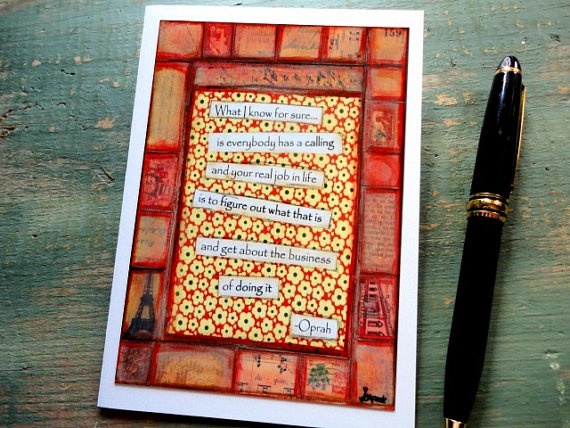 159
What I know for sure...
is everybody has a calling
and your real job in life
is to figure out what that is
and get about the business
of doing it
-Oprah